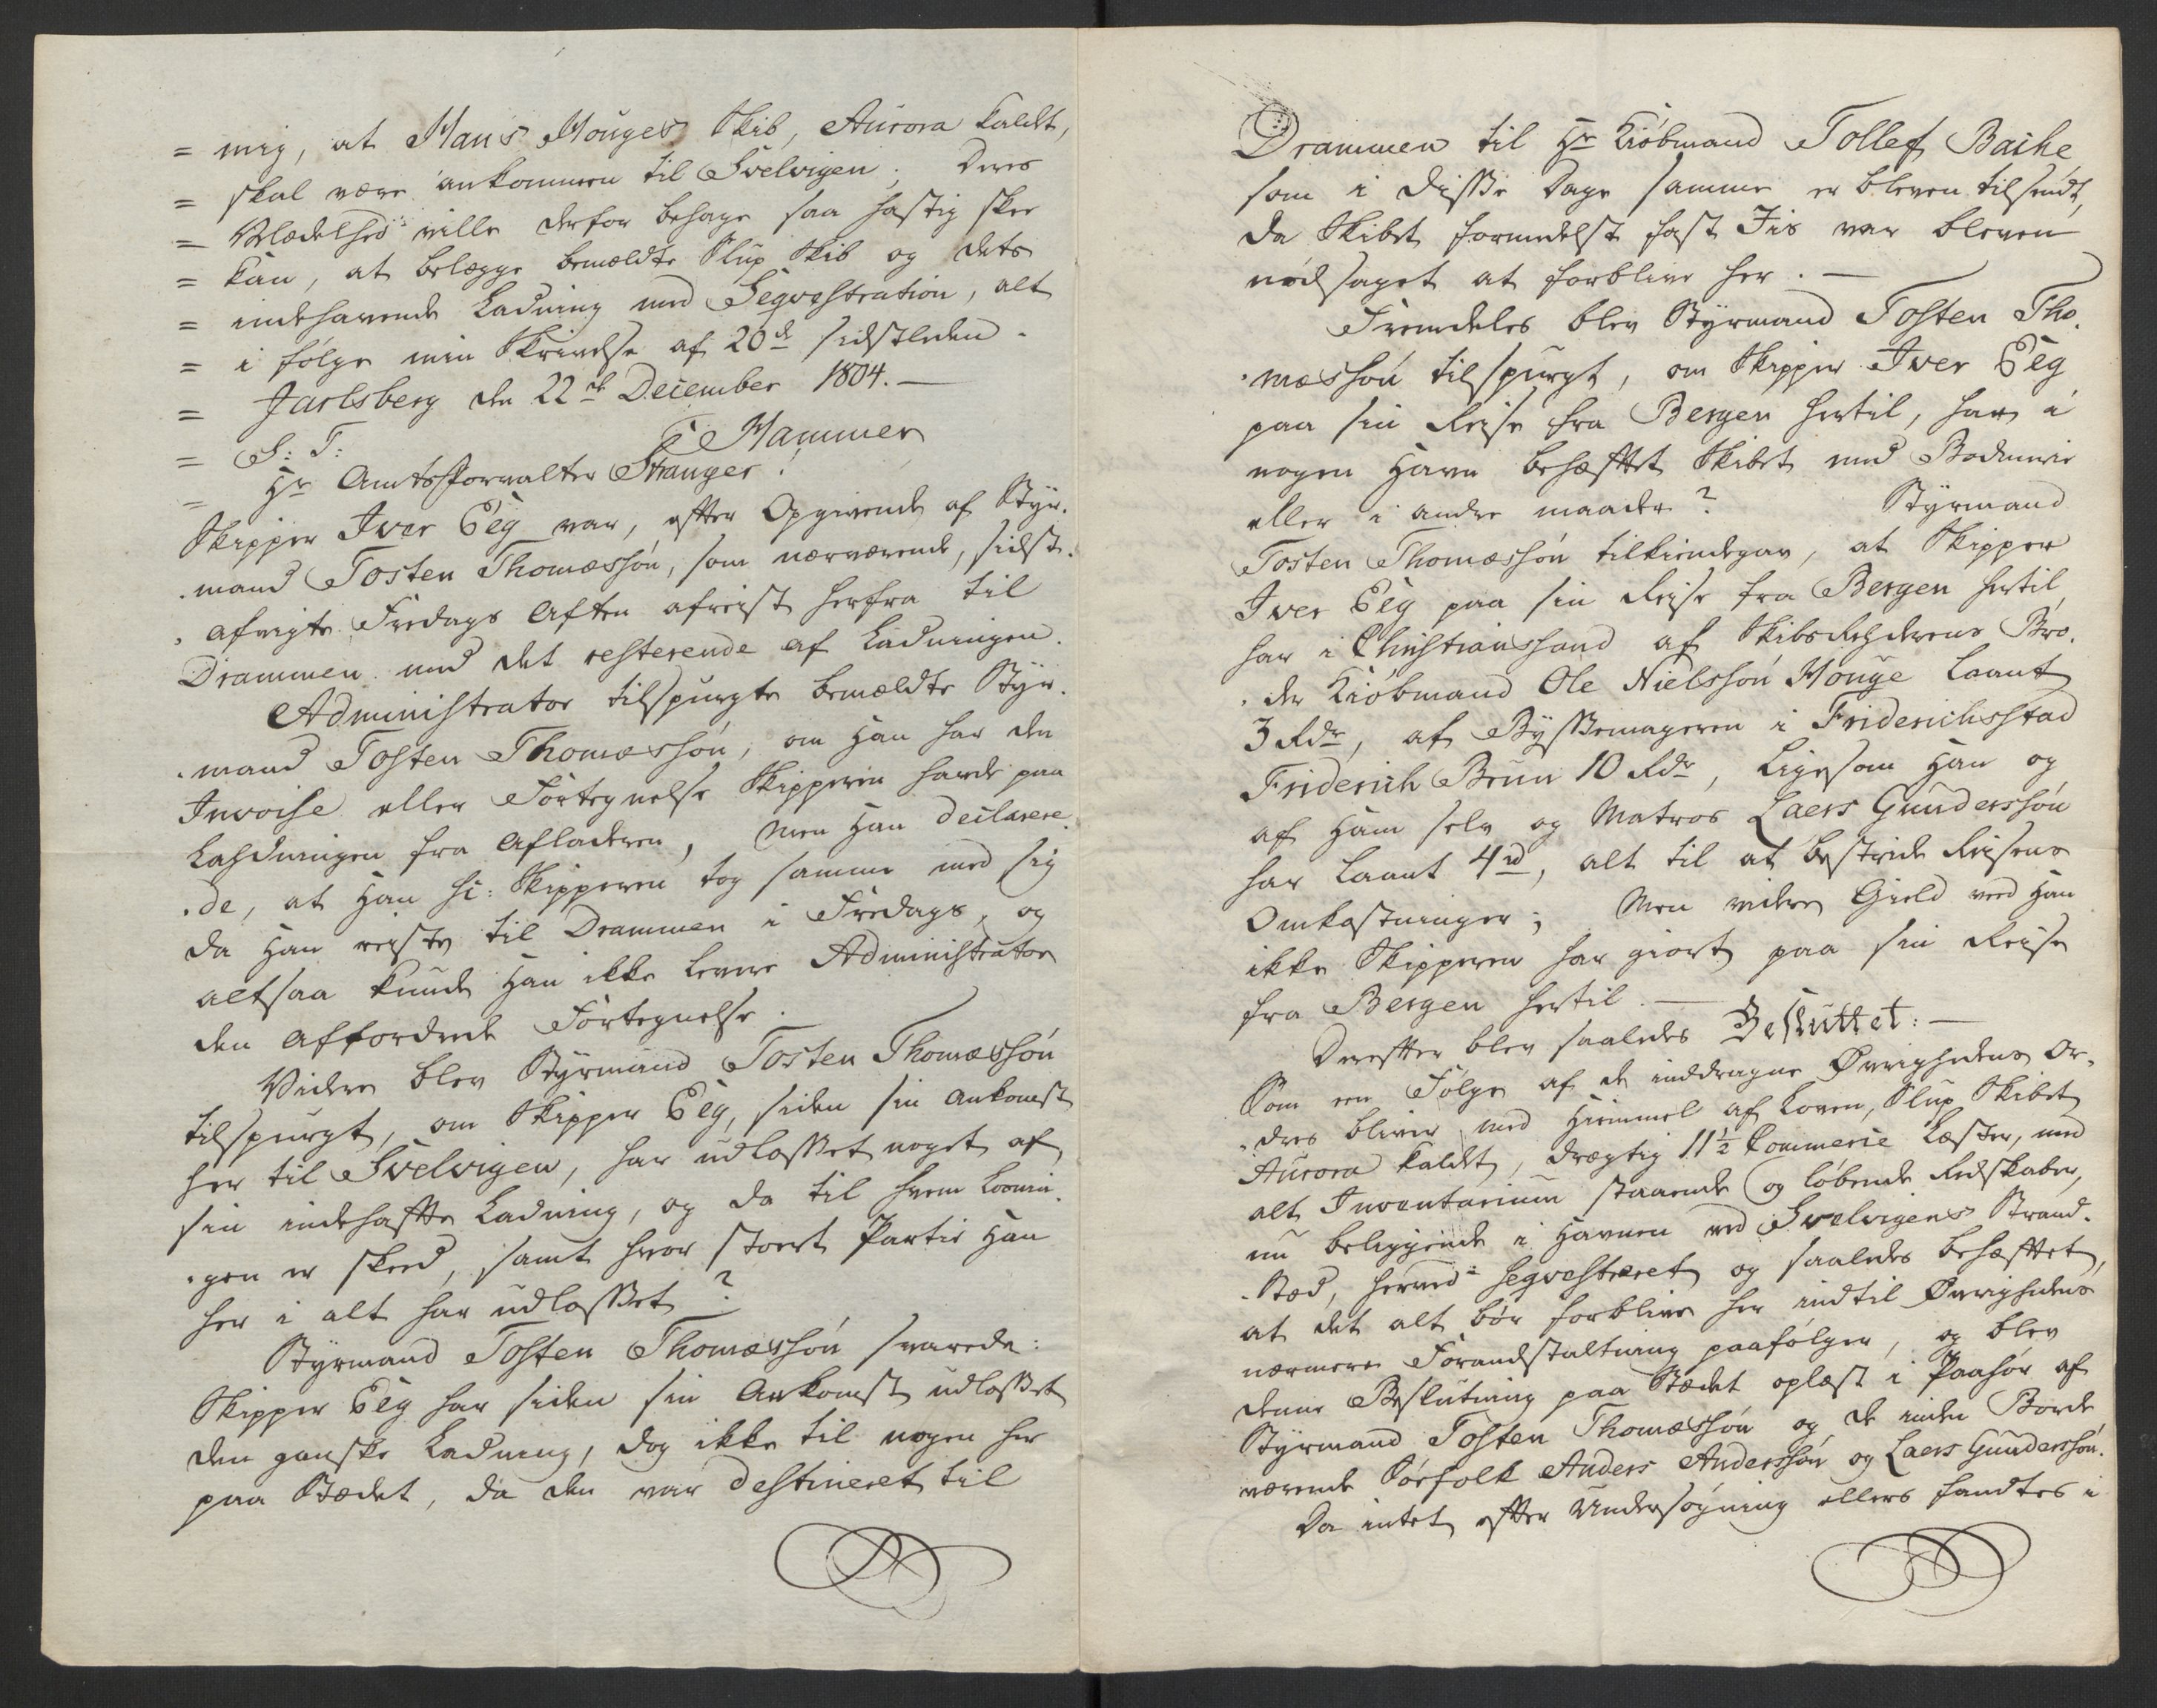 = mig, at Hans Houges Skib, Aurora kaldt,
= skal være ankommen til Svelvigen; Deres
= Velædelhed ville derfor behage saa hastig skee
= kan, at belægge bemældte Slup Skib og dets
= indehavende Ladning med Seqvestration, alt
= i følge min Skrivelse af 20de sidstleden.
= Jarlsberg den 22de December 1804. —
= S: T: C Hammer
= Hr Amtsforvalter Stranger!
Skipper Iver Eeg var, efter Opgivende af Styr-
-mand Tosten Thomæssøn, som nærværende, sidst-
-afvigte Fredags Aften afreist herfra til
Drammen med det resterende af Ladningen.
Administrator tilspurgte bemældte Styr-
-mand Tosten Thomæssøn, om Han har den
Invoise eller Fortegnelse Skipperen havde paa
Lahdningen fra Afladeren, Men Han declarere-
-de, at Han sc: Skipperen tog samme med sig
da Han reiste til Drammen i Fredags, og
altsaa kunde Han ikke levere Administrator
den affordrede Fortegnelse.
Videre blev Styrmand Tosten Thomæssøn
tilspurgt, om Skipper Eeg, siden sin Ankomst
her til Svelvigen, har udlosset noget af
sin indehafte Ladning, og da til hvem Losnin-
-gen er skeed, samt hvor stoert Partie Han
her i alt har udlosset?
Styrmand Tosten Thomæssøn svarede:
Skipper Eeg har siden sin Ankomst udlosset
den ganske Ladning, dog ikke til nogen her
paa Stædet, da den var destineret til
Drammen til Hr Kiøbmand Tollef Bache
som i disse Dage samme er bleven tilsendt,
da Skibet formedelst fast Iis var bleven
nødsaget at forblive her. —
Fremdeles blev Styrmand Tosten Tho-
-mæssøn tilspurgt, om Skipper Iver Eeg
paa sin Reise fra Bergen hertil, har i
nogen Havn behæftet Skibet med Bodmerie
eller i andre maader? Styrmand
Tosten Thomæssøn tilkiendegav, at Skipper
Iver Eeg paa sin Reise fra Bergen hertil,
har i Christianssand af Skibsrehderens Bro-
-der Kiøbmand Ole Nielssøn Houge laant
3 Rdr, af Byssemageren i Friderichsstad
Friderich Brun 10 Rdr, ligesom Han og
af Ham selv og Matros Laers Gunderssøn
har laant 4 rd, alt til at bestride Reisens
Omkostninger; Men videre Gield veed Han
ikke Skipperen har giort paa sin Reise
fra Bergen hertil. —
Derefter blev saaledes Besluttet: —
Som een Følge af de inddragne Øvrighedens Or-
-dres bliver, med Hiemmel af Loven, Slup Skibet
Aurora kaldet, drægtig 11½ Commerce Læster, med
alt Inventarium staaende og løbende Redskaber,
nu beliggende i Havnen ved Svelvigens Strand-
-Stæd, herved seqvestreret og saaledes behæftet,
at det alt bør forblive her indtil Øvrighedens
nærmere Forandstaltning paafølger, og blev
denne Beslutning paa Stædet oplæst i Paahør af
Styrmand Tosten Thomæssøn og de inden Borde
værende Søefolk Anders Anderssøn og Laers Gunderssøn.
Da intet efter Undersøgning ellers fandtes i